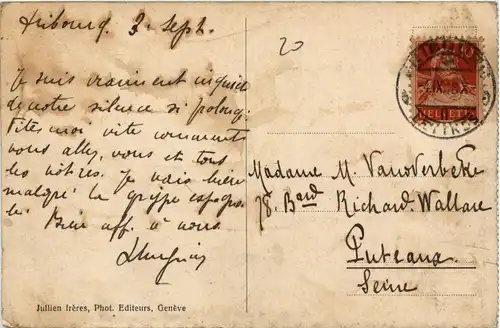 Fribourg. 3. Sept.
20
Je suis vraiment inquiet
de votre silence si prolongé.
Dites moi vite comment
vous allez, vous et tous
les vôtres. Je vais bien
malgré la grippe espagno
le. Bien aff. à vous
HELVETIA
Madame M. Vanoverbeke
78. Bard Richard. Wallace
Puteaux.
Seine
Jullien frères, Phot. Editeurs, Genève